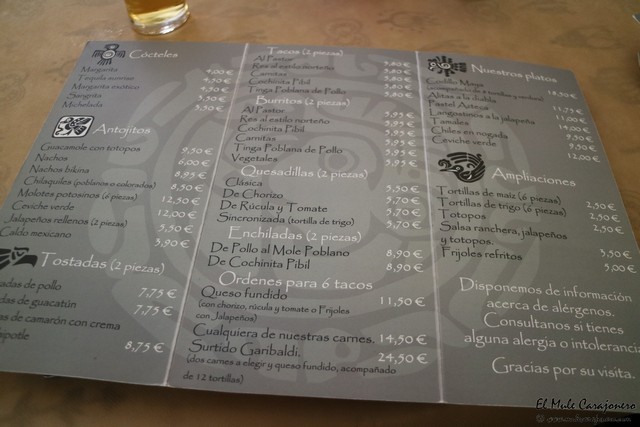 Cócteles
Margarita 4,00 €
Tequila sunrise 4,50 €
Margarita exótico 4,50 €
Sangrita 3,50 €
Michelada 3,50 €
Antojitos
Guacamole con totopos 9,50 €
Nachos 6,00 €
Nachos bikina 8,95 €
Chilaquiles (poblanos o colorados) 8,50 €
Molotes potosinos (6 piezas) 12,50 €
Ceviche verde 12,00 €
Jalapeños rellenos (2 piezas) 5,50 €
Caldo mexicano 5,90 €
Tostadas (2 piezas)
adas de pollo 7,75 €
adas de guacatún 7,75 €
das de camarón con crema
ipotle 8,75 €
Tacos (2 piezas)
Al Pastor 5,80 €
Res al estilo norteño 5,80 €
Carnitas 5,80 €
Cochinita Pibil 5,80 €
Tinga Poblana de Pollo 5,80 €
Burritos (2 piezas)
Al Pastor 5,95 €
Res al estilo norteño 5,95 €
Cochinita Pibil 5,95 €
Carnitas 5,95 €
Tinga Poblana de Pollo 5,95 €
Vegetales 5,95 €
Quesadillas (2 piezas)
Clásica 5,50 €
De Chorizo 5,70 €
De Rúcula y Tomate 5,70 €
Sincronizada (tortilla de trigo) 5,70 €
Enchiladas (2 piezas)
De Pollo al Mole Poblano 8,90 €
De Cochinita Pibil 8,90 €
Ordenes para 6 tacos
Queso fundido 11,50 €
(con chorizo, rúcula y tomate o Frijoles
con Jalapeños)
Cualquiera de nuestras carnes. 14,50 €
Surtido Garibaldi. 24,50 €
(dos carnes a elegir y queso fundido, acompañado
de 12 tortillas)
Nuestros platos
Maya 18,50 €
Alitas a la diabla 11,75 €
Pastel Azteca 11,00 €
Langostinos a la jalapeña 14,00 €
Tamales 9,50 €
Chiles en nogada 9,50 €
Ceviche verde 12,00 €
Ampliaciones
Tortillas de maíz (6 piezas) 2,50 €
Tortillas de trigo (6 piezas) 2,50 €
Totopos 2,50 €
Salsa ranchera, jalapeños
y totopos. 5,50 €
Frijoles refritos 5,00 €
Disponemos de información
acerca de alérgenos.
Consultanos si tienes
alguna alergia o intolerancia
Gracias por su visita.
El Mule Carajonero